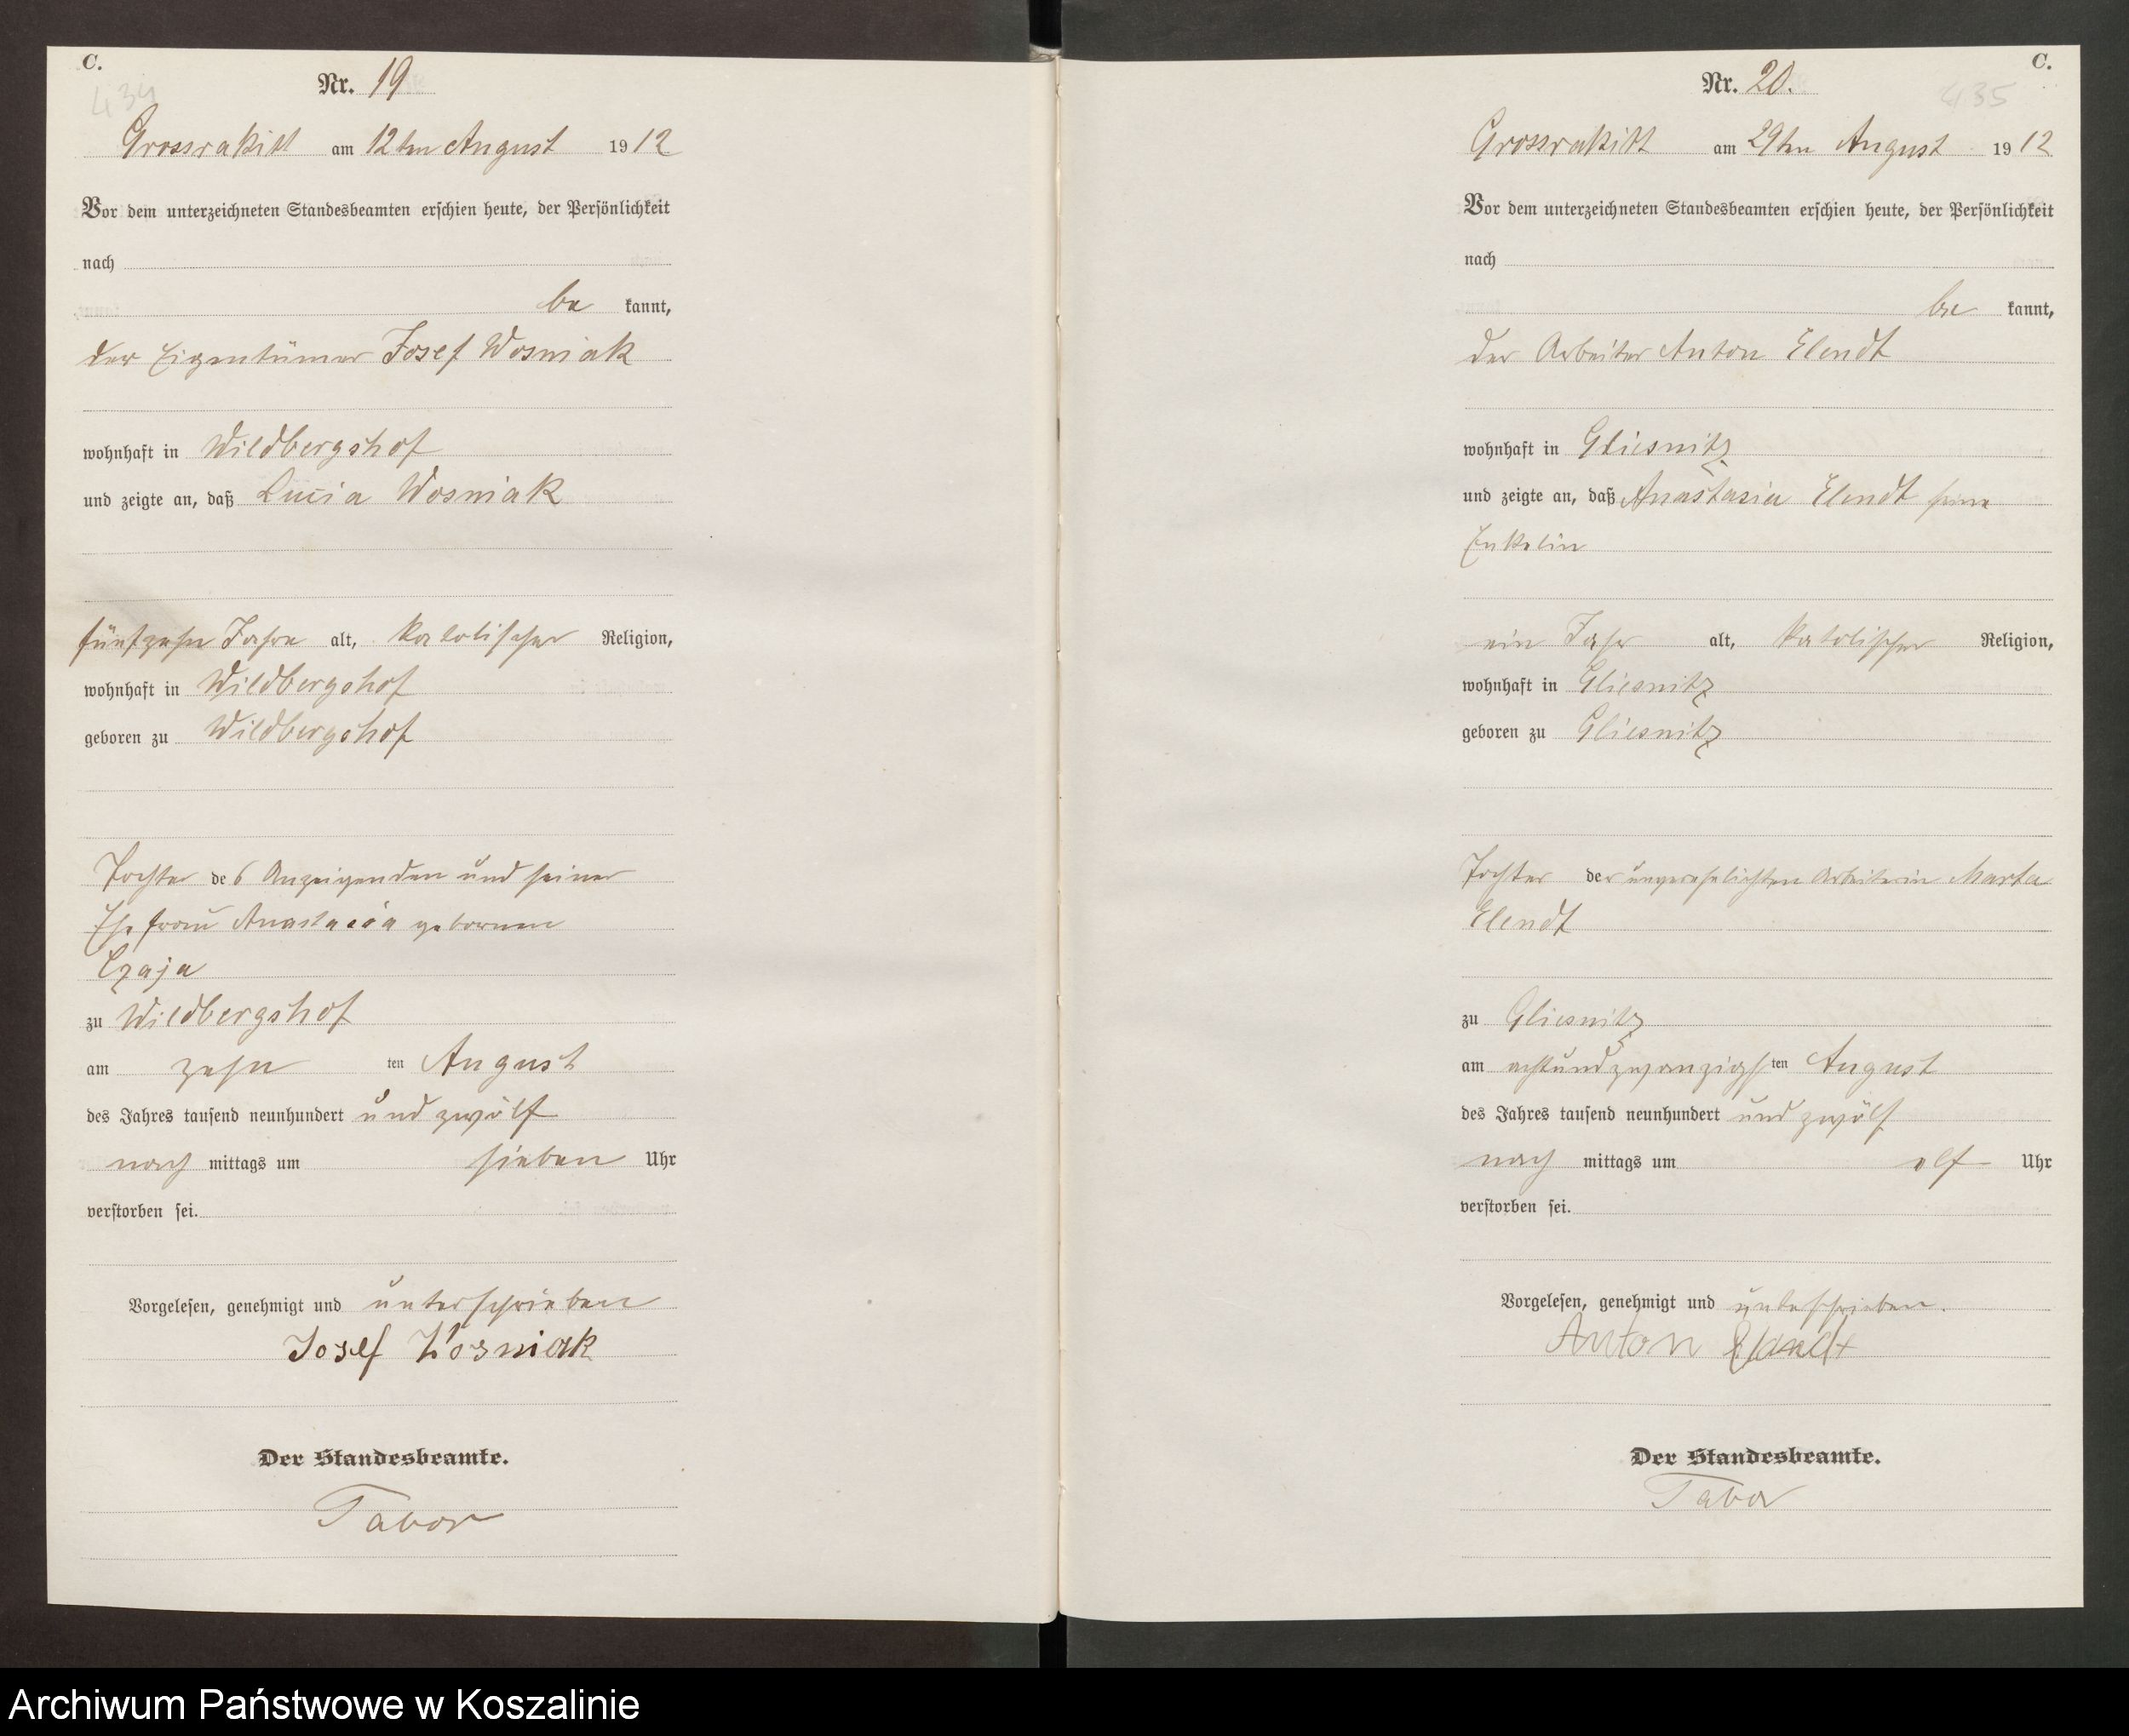 C.
434
Nr. 19
Grossrakitt am 12ten August 1912
Vor dem unterzeichneten Standesbeamten erschien heute, der Persönlichkeit
nach
be kannt,
der Eigentümer Josef Wosniak
wohnhaft in Wildbergshof
und zeigte an, daß Lucia Wosniak
fünfzehn Jahre alt, katolischer Religion,
wohnhaft in Wildbergshof
geboren zu Wildbergshof
Tochter des Anzeigenden und seiner
Ehefrau Anastasia gebornen
Czaja
zu Wildbergshof
am zehn ten August
des Jahres tausend neunhundert und zwölf
nach mittags um sieben Uhr
verstorben sei.
Vorgelesen, genehmigt und unterschrieben
Josef Wosniak
Der Standesbeamte.
Tabor
C.
435
Nr. 20.
Grossrakitt am 29ten August 1912
Vor dem unterzeichneten Standesbeamten erschien heute, der Persönlichkeit
nach
be kannt,
der Arbeiter Anton Elendt
wohnhaft in Gliesnitz
und zeigte an, daß Anastasia Elendt seine
Enkelin
ein Jahr alt, katolischer Religion,
wohnhaft in Gliesnitz
geboren zu Gliesnitz
Tochter der unverehelichten Arbeiterin Marta
Elendt
zu Gliesnitz
am achtundzwanzigs ten August
des Jahres tausend neunhundert und zwölf
nach mittags um elf Uhr
verstorben sei.
Vorgelesen, genehmigt und unterschrieben.
Anton
Der Standesbeamte.
Tabor
Archiwum Państwowe w Koszalinie